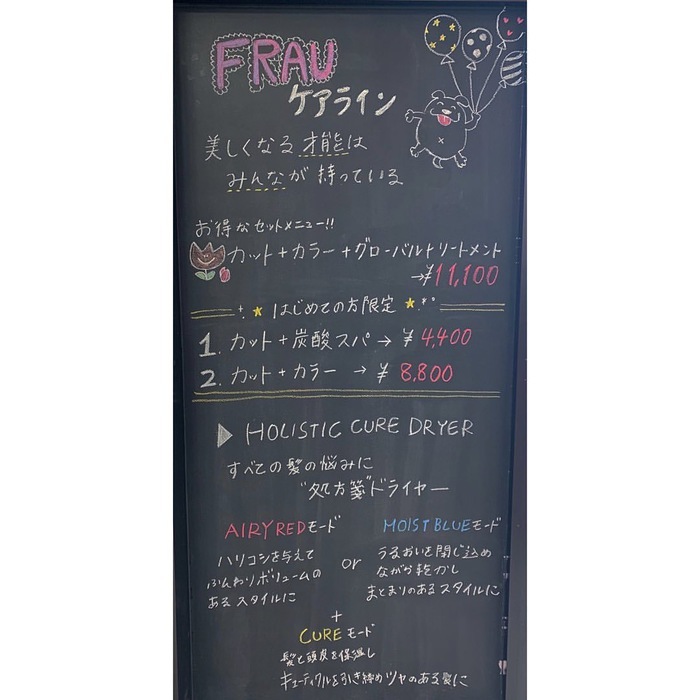 FRAU
ケアライン
美しくなる才能は
みんなが持っている
お得なセットメニュー!!
カット+カラー+グローバルトリートメント
→¥11,100
はじめての方限定
1. カット+炭酸スパ→ ¥4,400
2. カット+カラー → ¥8,800
▶ HOLISTIC CURE DRYER
すべての髪の悩みに
"処方箋"ドライヤー
AIRYREDモード
ハリコシを与えて
ふんわりボリュームの
あるスタイルに
or
MOISTBLUEモード
うるおいを閉じ込め
ながら乾かし
まとまりのあるスタイルに
+
CUREモード
髪と頭皮を保湿し
キューティクルを引き締めツヤのある髪に